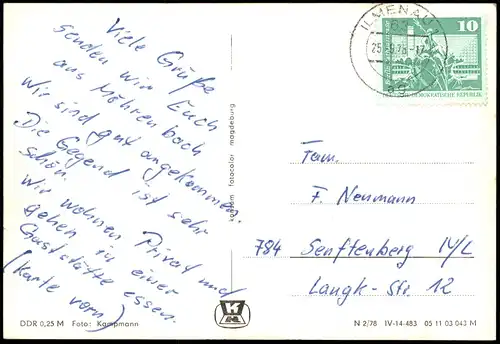 Viele Grüße
senden wir Euch
aus Möhrenbach
Wir sind gut angekommen.
Die Gegend ist sehr
schön.
Wir wohnen Privat und
gehen zu einer
Gaststätte essen.
(Karte vorn)
DDR 0,25 M Foto: Kampmann
magdeburg
ILMENAU 1
63
25.-9.78-17
ag
10
DEUTSCHE DEMOKRATISCHE REPUBLIK
Fam.
F. Neumann
784 Senftenberg IV/L
Langk-Str. 12
N 2/78 IV-14-483 05 11 03 043 M